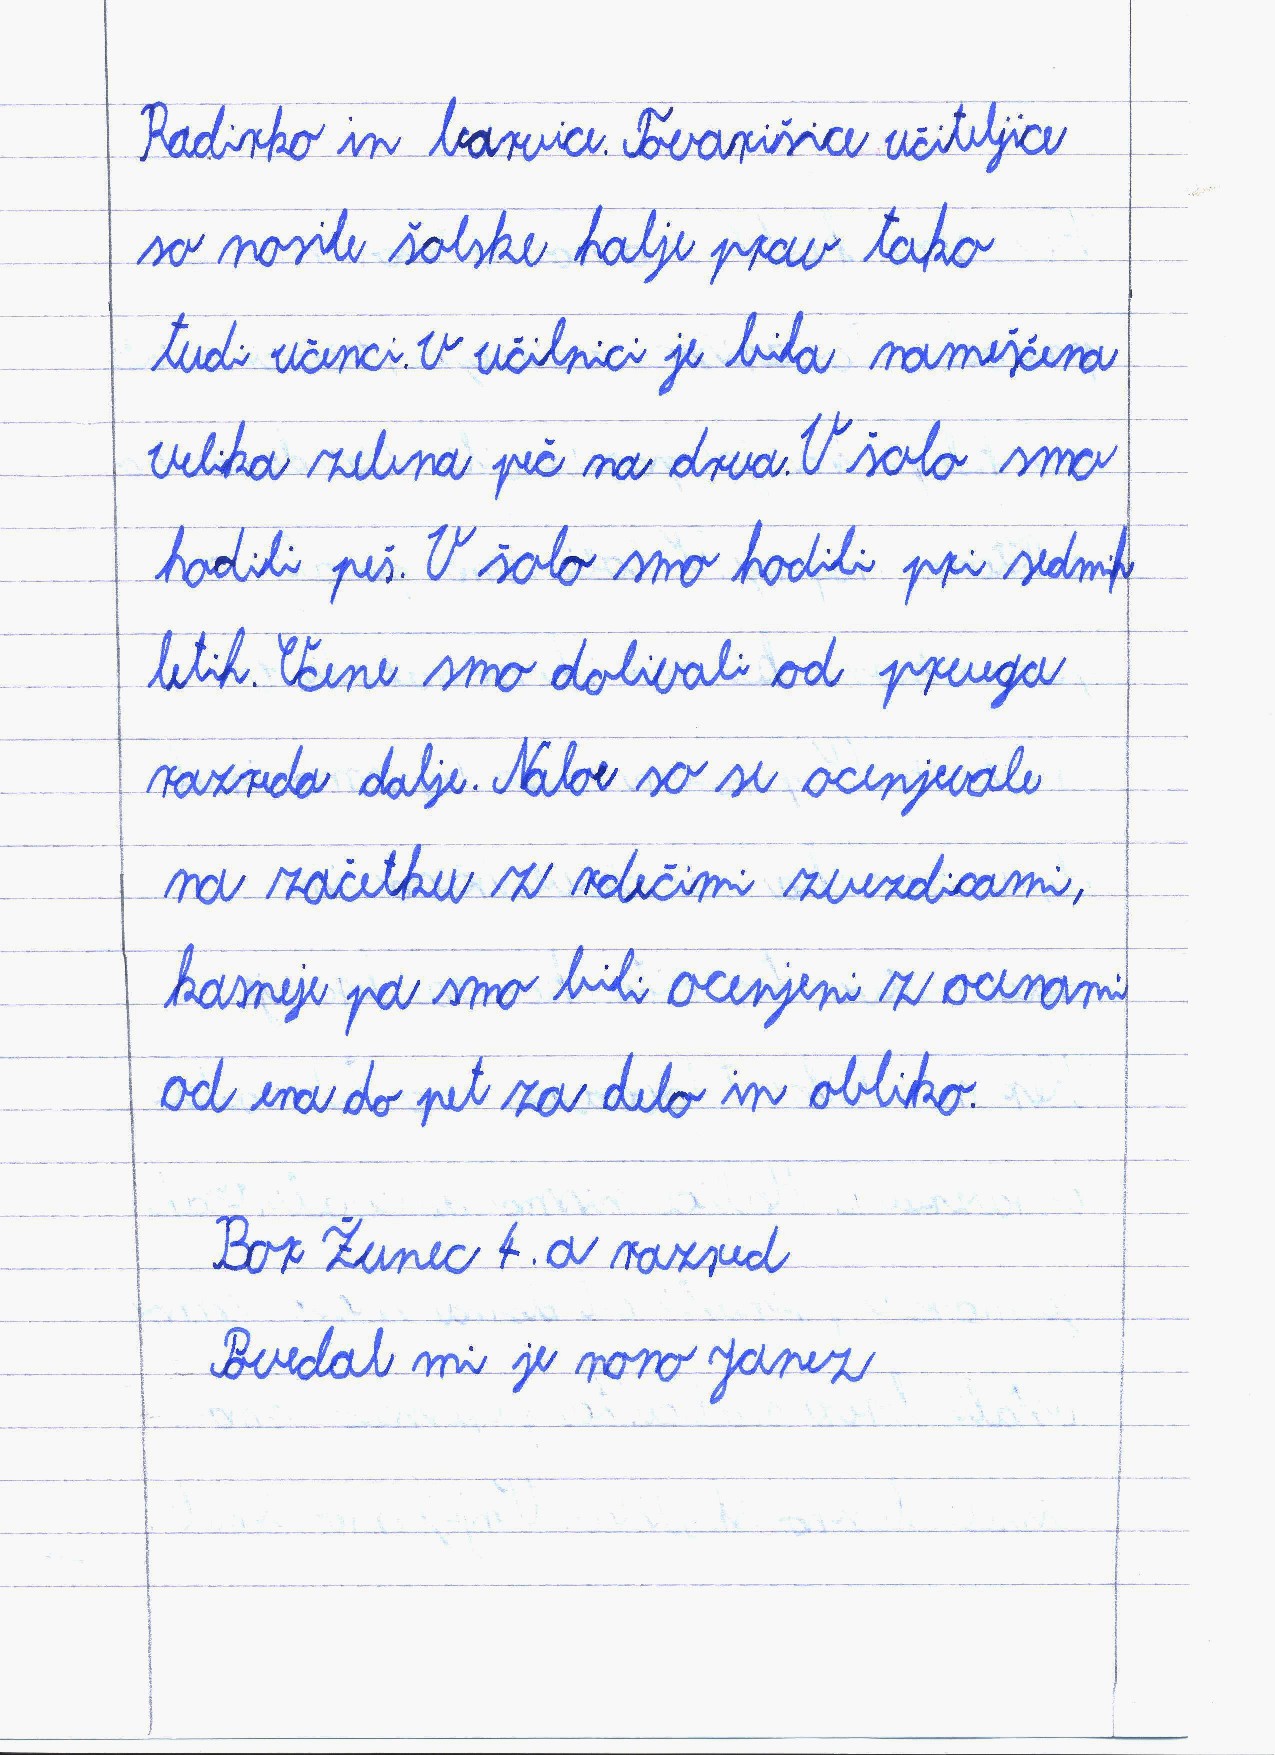 Radirko in barvice. Tovarišice učiteljice
so nosile šolske halje prav tako
tudi učenci. V učilnici je bila nameščena
velika zelena peč na drva. V šolo smo
hodili peš. V šolo smo hodili pri sedmih
letih. Učene smo dolivali od prvega
razreda dalje. Naloe so se ocenjevale
na začetku z rdečimi zvezdicami,
kasneje pa smo bili ocenjeni z ocenami
od ena do pet za delo in obliko.
Bor Žunec 4. a razred
Povedal mi je nono Janez